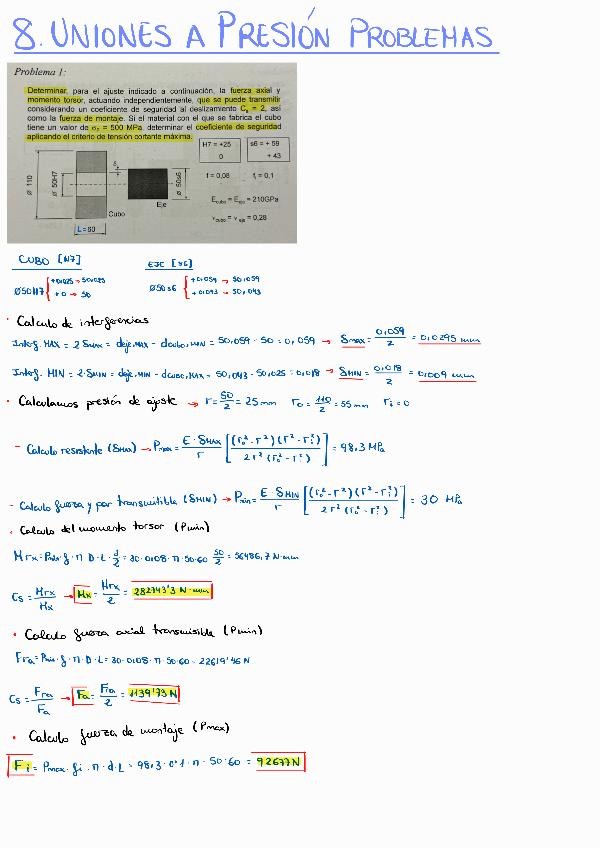 8. UNIONES A PRESIÓN PROBLEMAS
Problema 1:
Determinar, para el ajuste indicado a continuación, la fuerza axial y
momento torsor, actuando independientemente, que se puede transmitir
considerando un coeficiente de seguridad al deslizamiento Cs = 2, así
como la fuerza de montaje. Si el material con el que se fabrica el cubo
tiene un valor de σE = 500 MPa, determinar el coeficiente de seguridad
aplicando el criterio de tensión cortante máxima.
H7 = +25
0
s6 = + 59
+ 43
δ
Ø 110
Ø 50H7
Ø 50s6
f = 0,08
fi = 0,1
Eje
Cubo
L=60
Ecubo = Eeje = 210GPa
νcubo = νeje = 0,28
CUBO [H7]
EJE [s6]
Ø50H7 { +0,025 → 50,025
+0 → 50
Ø50s6 { +0,059 → 50,059
+0,043 → 50,043
· Calculo de interferencias
Interf. MAX = 2 δMAX = deje,MAX - dcubo,MIN = 50,059 - 50 = 0,059 → δmax = 0,059/2 = 0,0295 mm
Interf. MIN = 2·δMIN = deje,MIN - dcubo,MAX = 50,043 - 50,025 = 0,018 → δMIN = 0,018/2 = 0,009 mm
· Calculamos presión de ajuste → r = 50/2 = 25 mm ro = 110/2 = 55 mm ri = 0
- Calculo resistente (δMAX) → Pmax = E·δMAX/r [(ro²-r²)(r²-ri²)/2r²(ro²-ri²)] = 98,3 MPa
- Calculo fuerza y par transmitible (δMIN) → Pmin = E δMIN/r [(ro²-r²)(r²-ri²)/2r²(ro²-ri²)] = 30 MPa
· Calculo del momento torsor (Pmin)
Mrx = Pmin·f·π·D·L·d/2 = 30·0'08·π·50·60 50/2 = 56486,7 N·mm
Cs = Mrx/Mx → Mx = Mrx/2 = 282743'3 N·mm
· Calculo fuerza axial transmisible (Pmin)
Fra = Pmin·f·π·D·L = 30·0'08·π·50·60 = 22619'46 N
Cs = Fra/Fa → Fa = Fra/2 = 1139'73 N
· Calculo fuerza de montaje (Pmax)
Fi = Pmax·fi·π·d·L = 98,3·0'1·π·50·60 = 92677 N